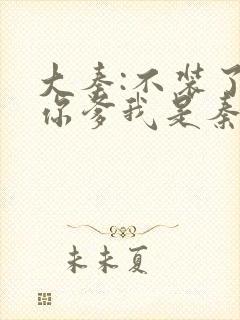 大秦:不装了
你爹我是秦
未未夏